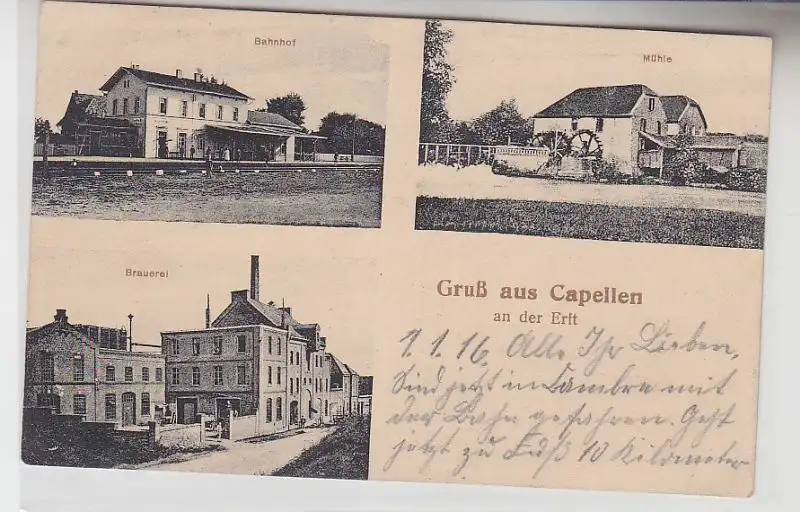 Bahnhof
Mühle
Brauerei
Gruß aus Capellen
an der Erft
1.1.16. Alle Ihr Lieben,
Sind jetzt in Cambrai mit
der Bahn gefahren. Geht
jetzt zu Fuß 10 Kilometer